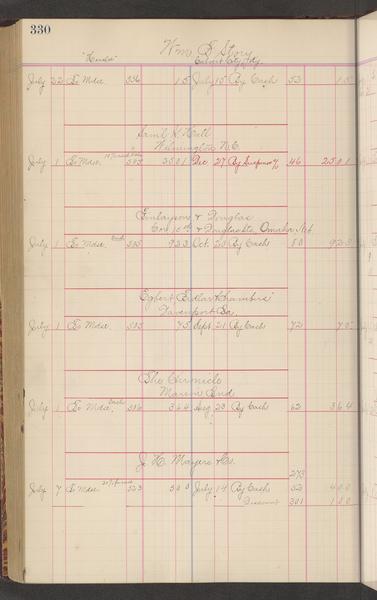 330
Wm E Story
July 22 To Mdse. 536 15 July 15 By Cash 53 15
Saml H Hall
Wilmington N.C.
July 1 To Mdse. 535 2501 Dec 27 By Suspense a/c 46 2501
Finlayson & Douglas
Cor 10th & Douglas Sts, Omaha Neb
July 1 To Mdse. Cash 535 923 Oct. 20 By Cash 80 923
Egbert Fidlar & Chambers
Davenport Ia.
July 1 To Mdse 535 75 Sept. 21 By Cash 72 75
The Chronicle
Marion Ind
July 1 To Mdse. Cash 536 364 Aug 23 By Cash 62 364
J H Mayers & Co.
273
July 7 To Mdse. 523 500 July 14 By Cash 52 400
Discount 301 100